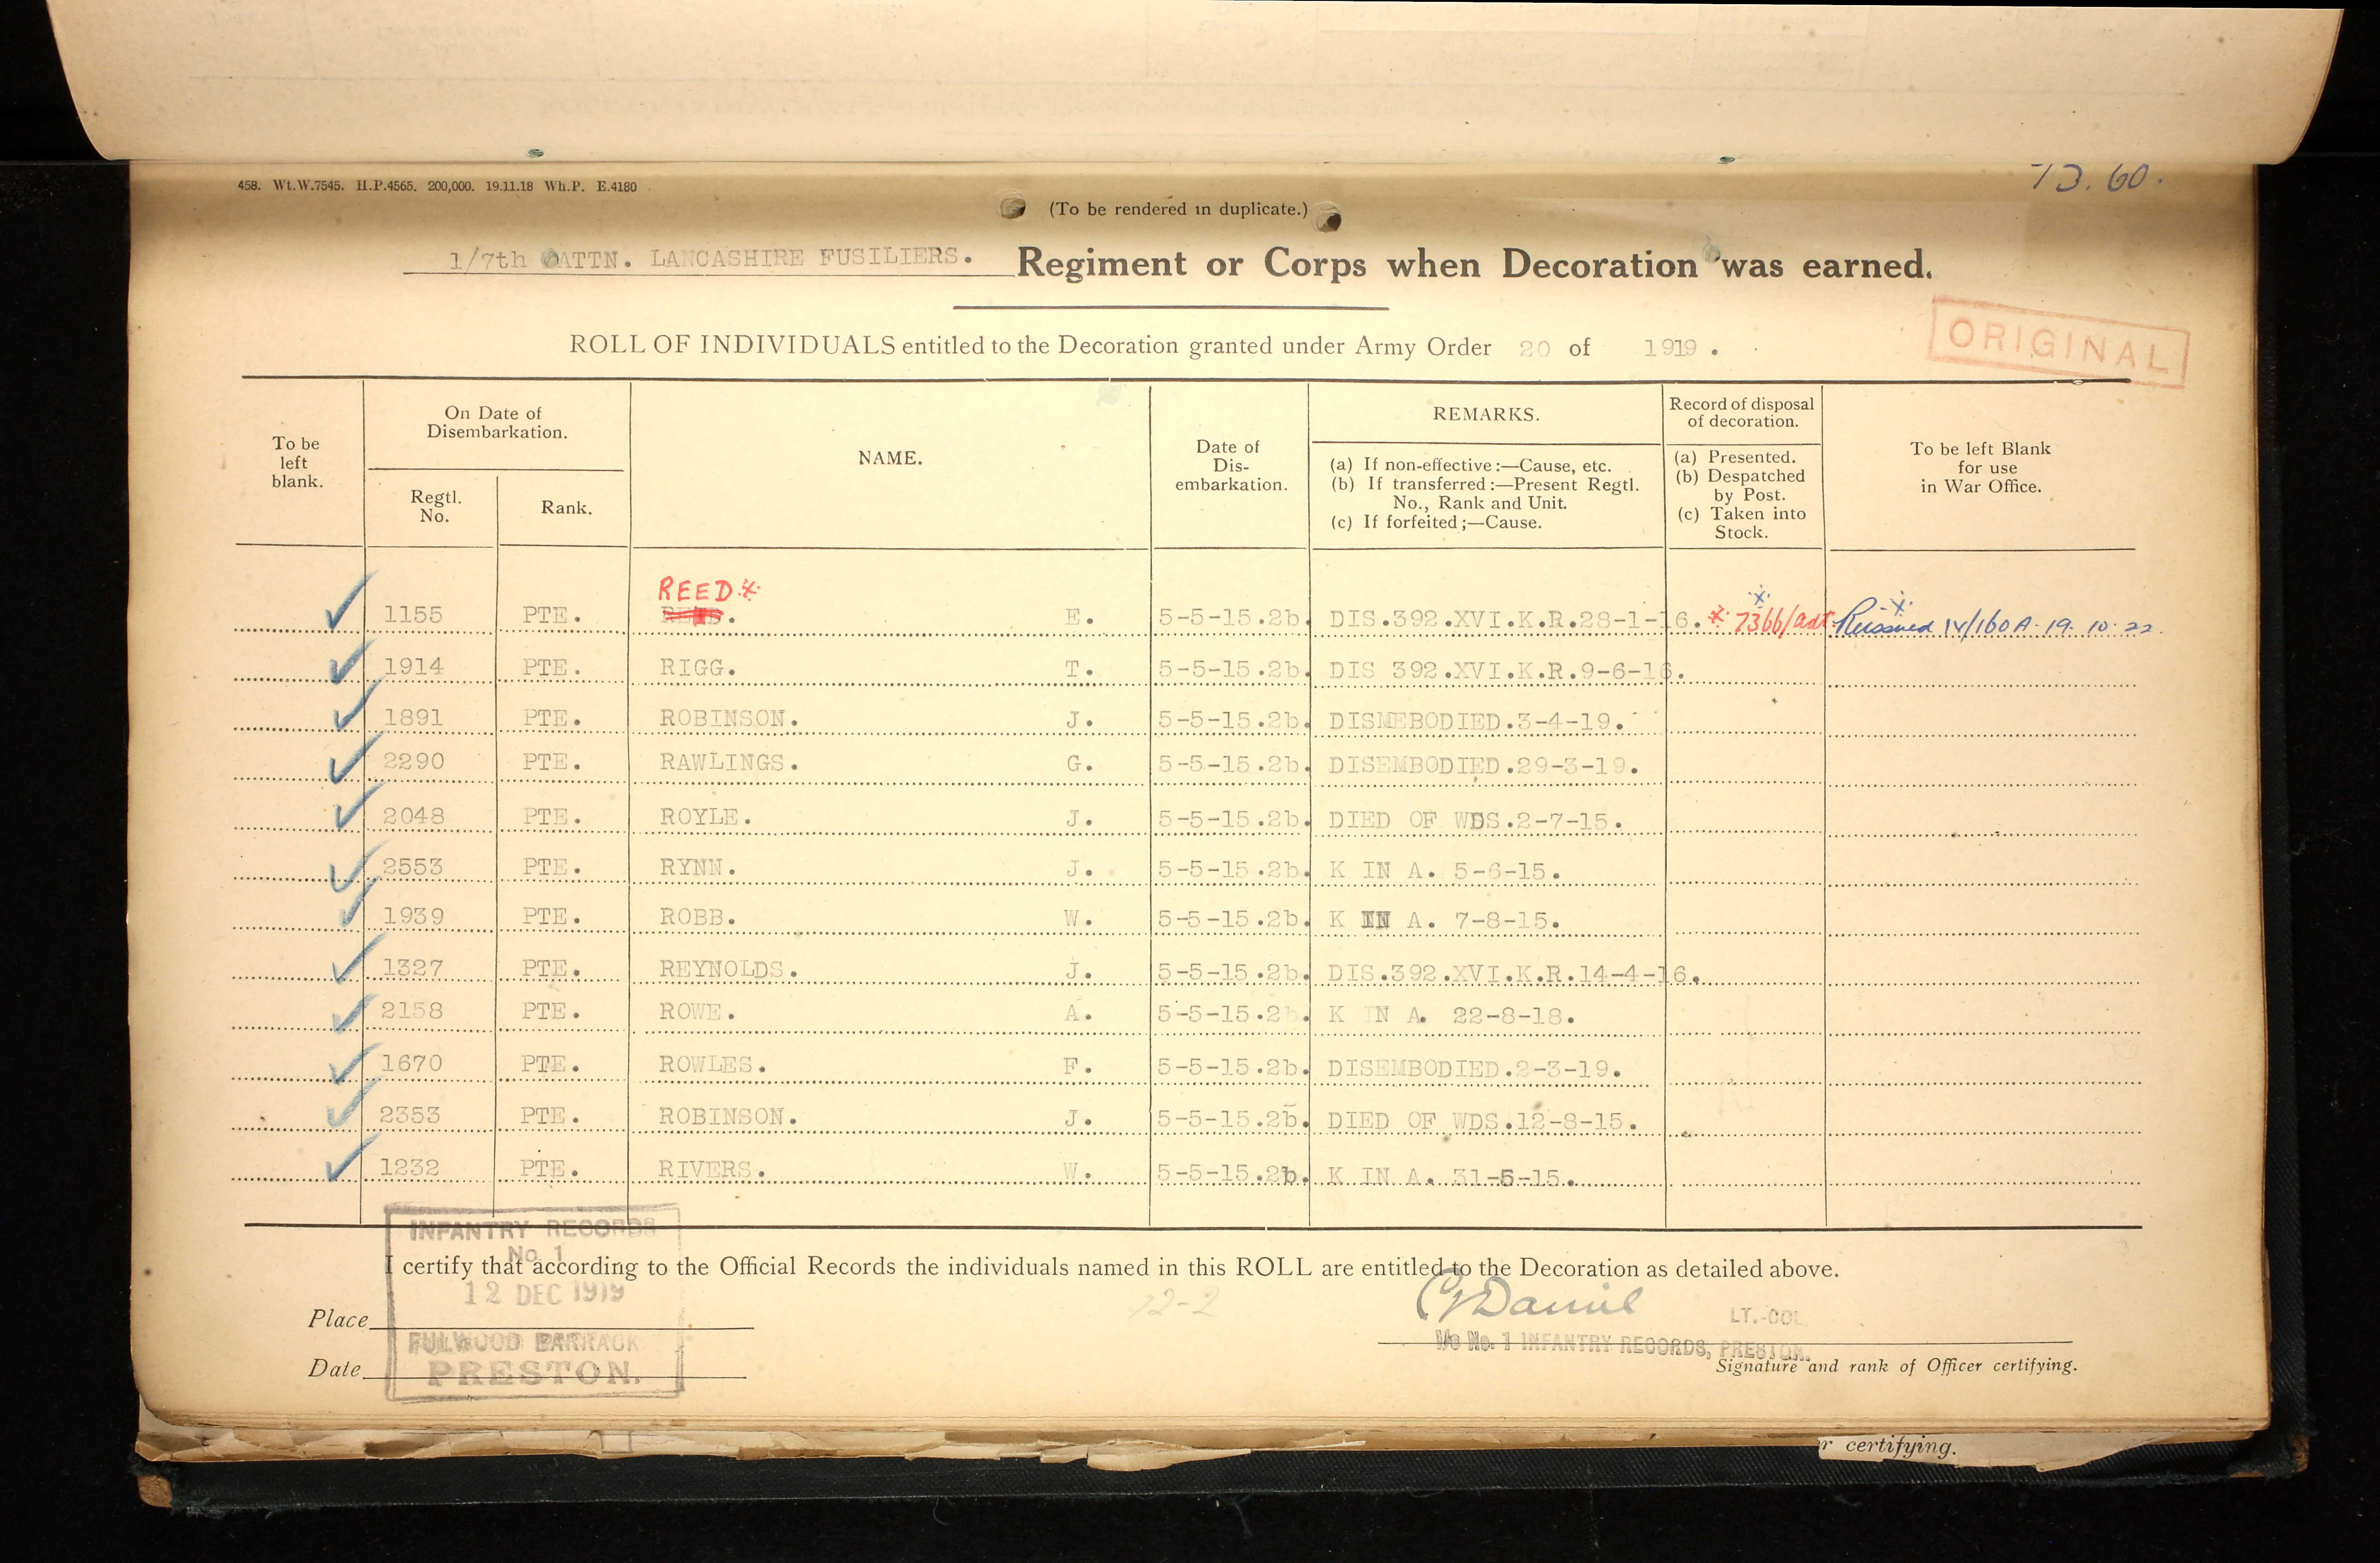 458. Wt.W.7545. H.P.4565. 200,000. 19.11.18 Wh.P. E.4180
73.60.
(To be rendered in duplicate.)
1/7th BATTN. LANCASHIRE FUSILIERS. Regiment or Corps when Decoration was earned.
ORIGINAL
ROLL OF INDIVIDUALS entitled to the Decoration granted under Army Order 20 of 1919.
To be left blank.
On Date of Disembarkation.
Regtl. No.
Rank.
NAME.
Date of Dis-embarkation.
REMARKS.
(a) If non-effective:—Cause, etc.
(b) If transferred:—Present Regtl. No., Rank and Unit.
(c) If forfeited;—Cause.
Record of disposal of decoration.
(a) Presented.
(b) Despatched by Post.
(c) Taken into Stock.
To be left Blank for use in War Office.
REED *
1155 PTE. E. 5-5-15.2b. DIS.392.XVI.K.R.28-1-16. * 7366/adt Reissued IV/160A. 19.10.22.
1914 PTE. RIGG. T. 5-5-15.2b. DIS 392.XVI.K.R.9-6-16.
1891 PTE. ROBINSON. J. 5-5-15.2b. DISMEBODIED.3-4-19.
2290 PTE. RAWLINGS. G. 5-5-15.2b. DISEMBODIED.29-3-19.
2048 PTE. ROYLE. J. 5-5-15.2b. DIED OF WDS.2-7-15.
2553 PTE. RYNN. J. 5-5-15.2b. K IN A. 5-6-15.
1939 PTE. ROBB. W. 5-5-15.2b. K IN A. 7-8-15.
1327 PTE. REYNOLDS. J. 5-5-15.2b. DIS.392.XVI.K.R.14-4-16.
2158 PTE. ROWE. A. 5-5-15.2b. K IN A. 22-8-18.
1670 PTE. ROWLES. F. 5-5-15.2b. DISEMBODIED.2-3-19.
2353 PTE. ROBINSON. J. 5-5-15.2b. DIED OF WDS.12-8-15.
1232 PTE. RIVERS. W. 5-5-15.2b. K IN A. 31-5-15.
INFANTRY RECORDS
No. 1
I certify that according to the Official Records the individuals named in this ROLL are entitled to the Decoration as detailed above.
12 DEC 1919
12-2
Daniel LT.-COL.
Place
FULWOOD BARRACK
I/c No. 1 INFANTRY RECORDS, PRESTON.
Signature and rank of Officer certifying.
Date
PRESTON.
r certifying.